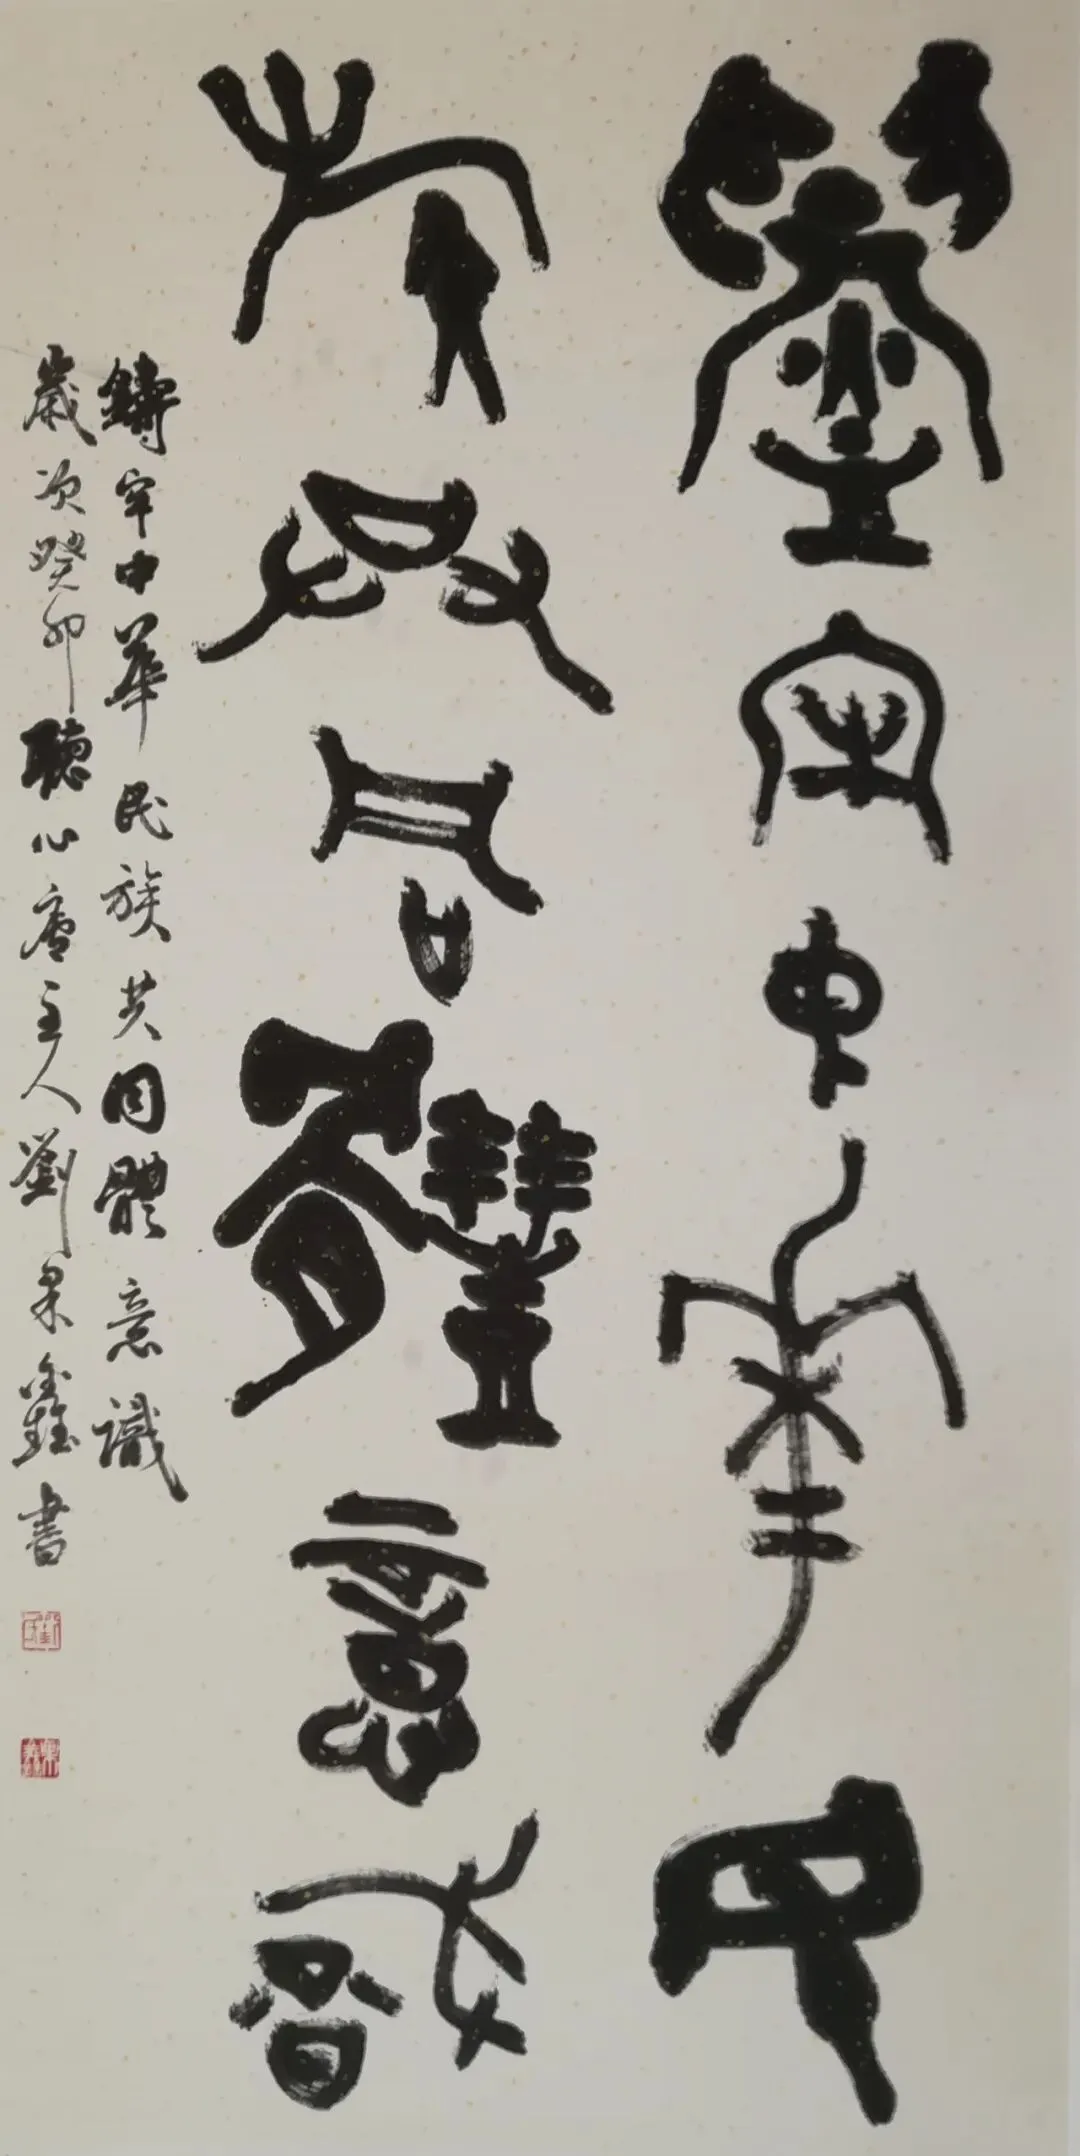 鑄牢中華民
族共同體意識
鑄牢中華民族共同體意識
歲次癸卯聽心齋主人劉果鑫書